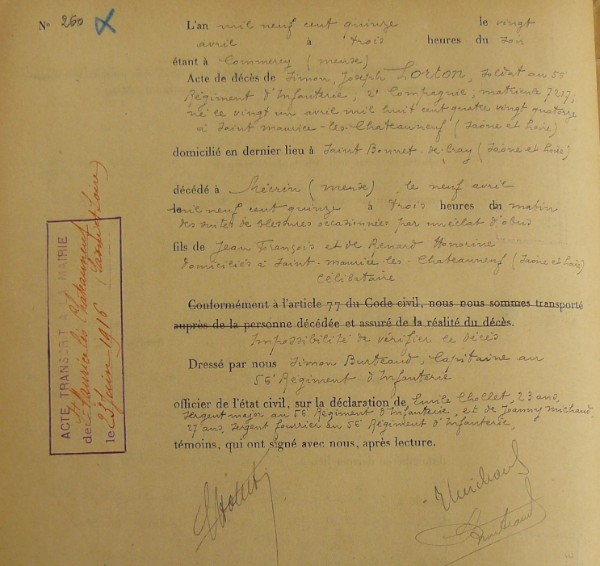 N° 260
L'an mil neuf cent quinze le vingt
avril à trois heures du soir
étant à Commercy (meuse)
Acte de décès de Simon, Joseph Lorton, soldat au 56
Régiment d'Infanterie, 2e Compagnie; matricule 7217;
né le vingt un avril mil huit cent quatre vingt quatorze
à Saint maurice-les-Chateauneuf (Saône et Loire)
domicilié en dernier lieu à Saint Bonnet de Cray (Saône et Loire)
décédé à Mécrin (meuse), le neuf avril
mil neuf cent quinze à trois heures du matin
des suites de blessures occasionnées par un éclat d'obus
fils de Jean François et de Renard Honorine
domiciliés à Saint-maurice-les-Chateauneuf (Saône et Loire)
Célibataire
Conformément à l'article 77 du Code civil, nous nous sommes transporté
auprès de la personne décédée et assuré de la réalité du décès.
Impossibilité de vérifier le décès
Dressé par nous Simon Burteaud, Capitaine au
56e Régiment d'Infanterie
officier de l'état civil, sur la déclaration de Emile Chollet, 23 ans,
Sergent major au 56 Régiment d'Infanterie, et de Joanny Michaud,
27 ans, Sergent fourrier au 56 Régiment d'Infanterie,
témoins, qui ont signé avec nous, après lecture.
ACTE TRANSCRIT A LA MAIRIE
de St Maurice les Châteauneuf (Saône et Loire)
le 1916